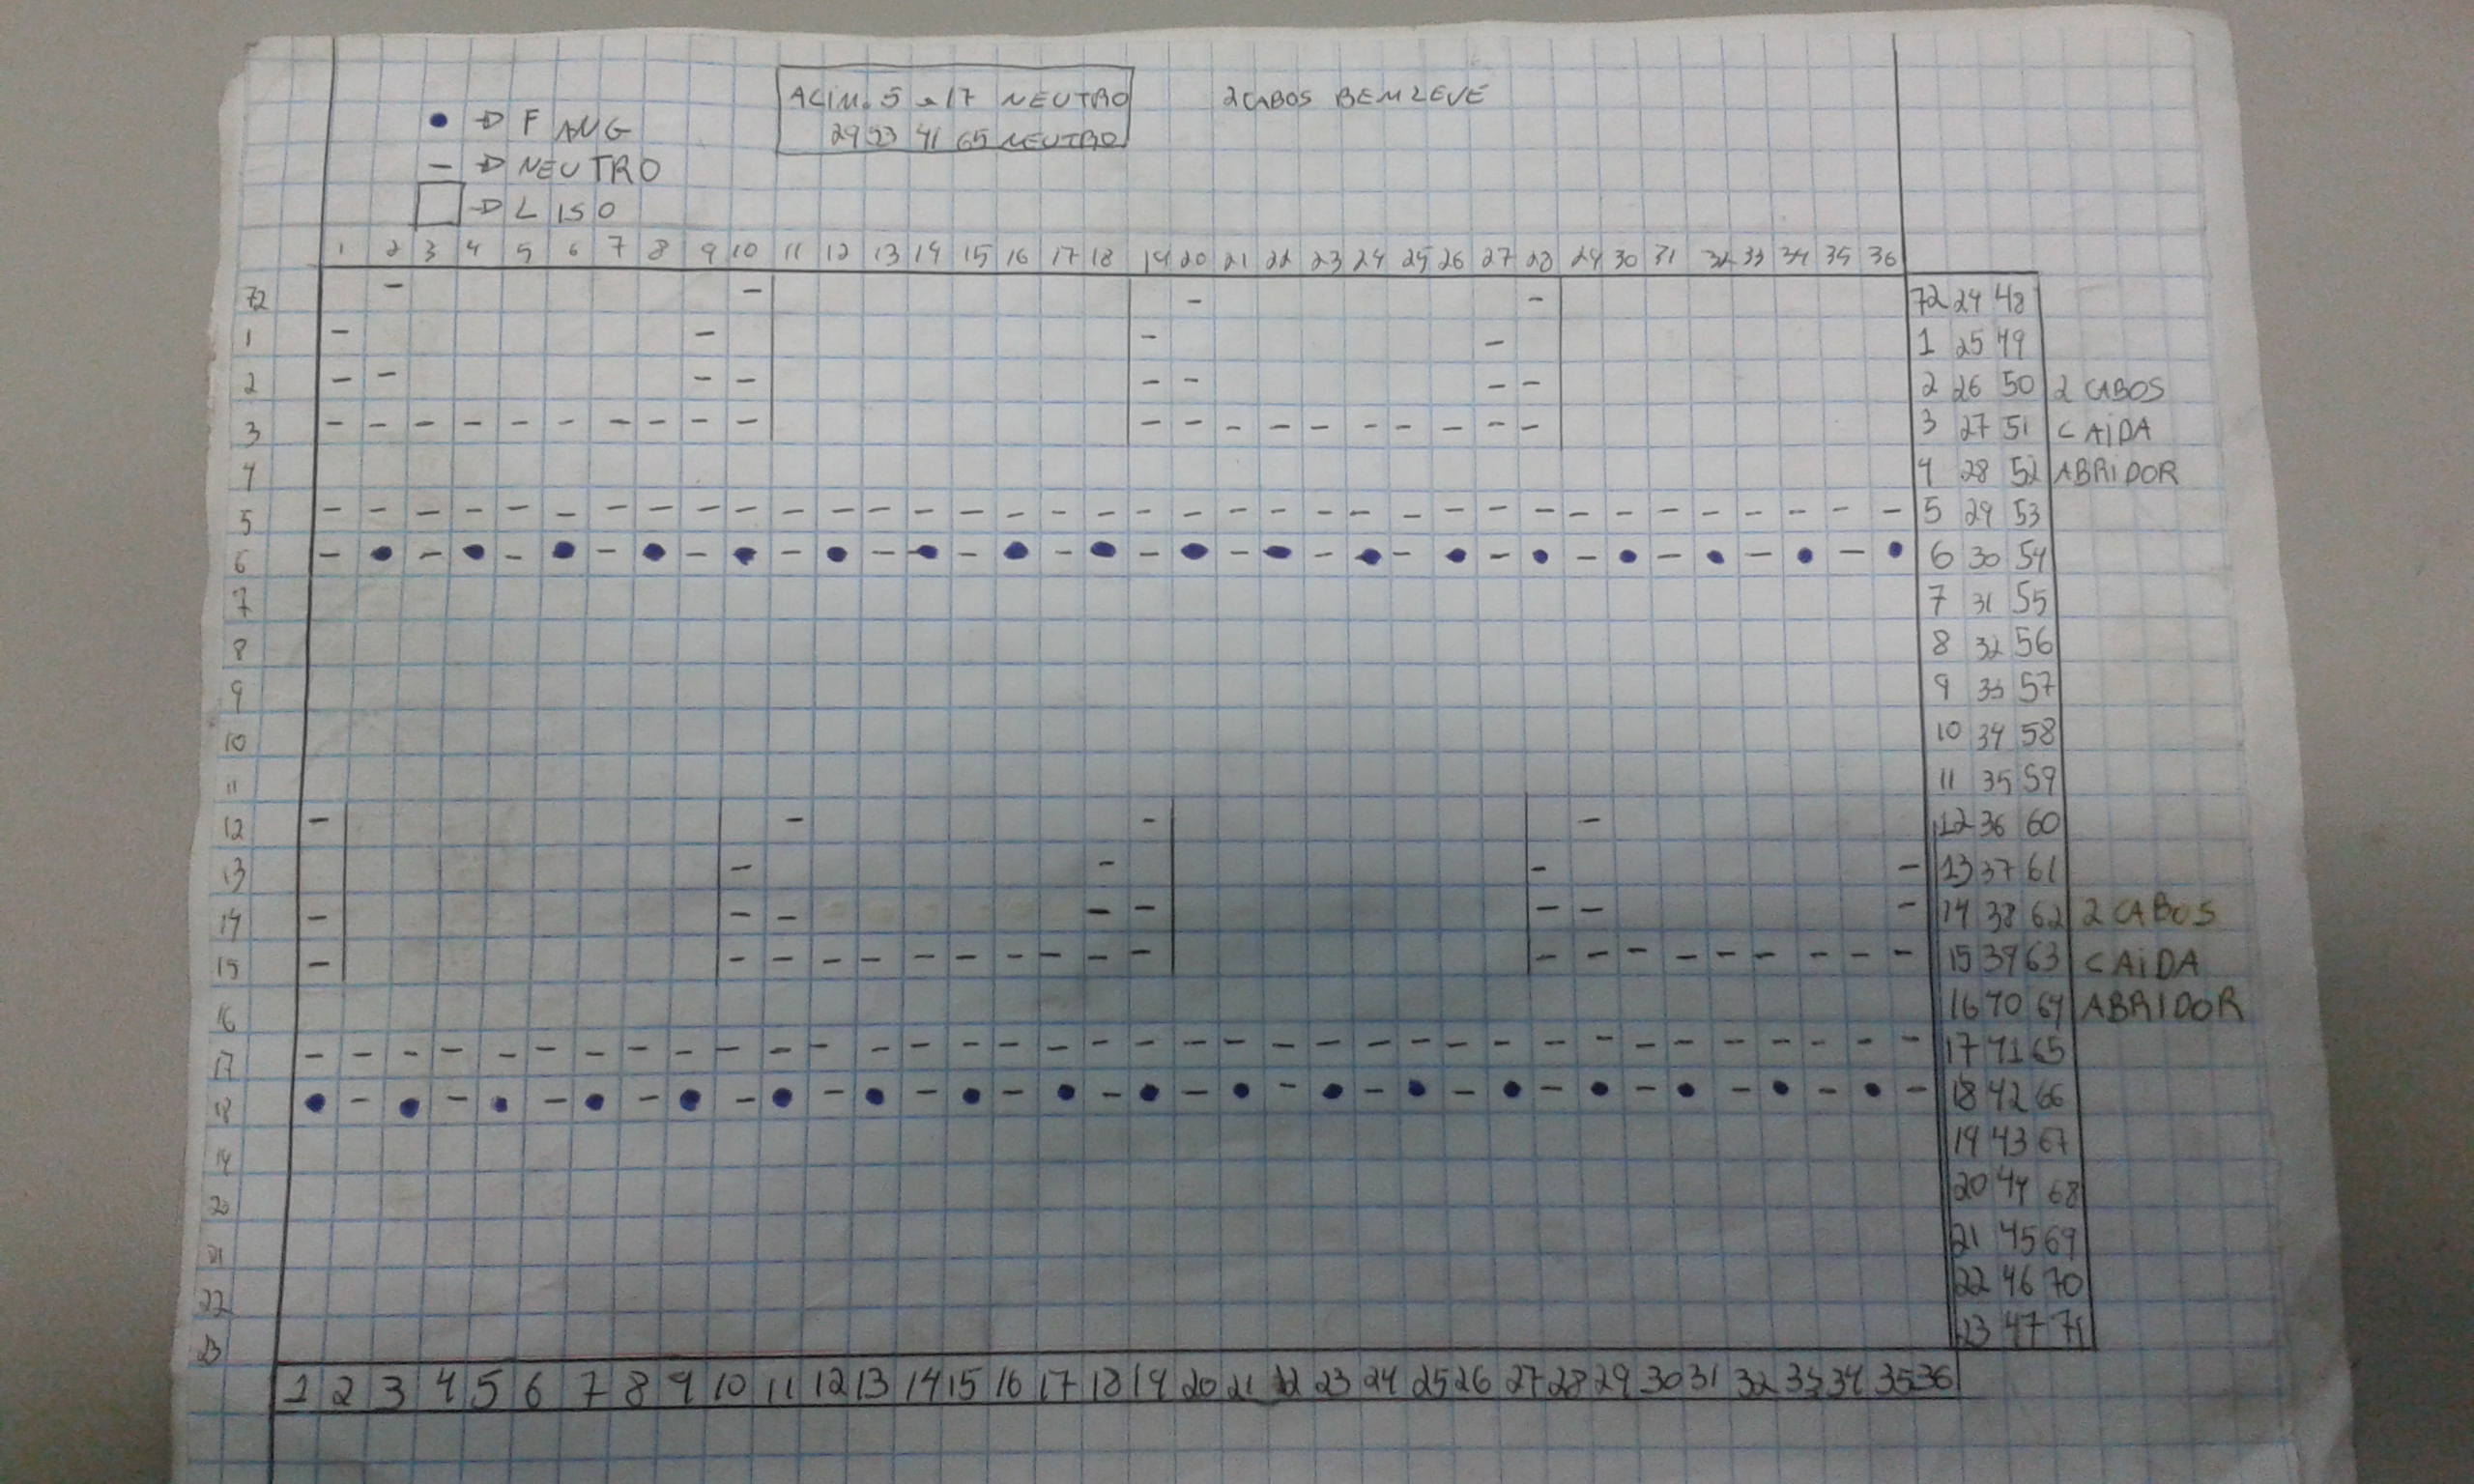 ● → FANG
— → NEUTRO
□ → LISO
ALIM. 5 - 17 NEUTRO
29 53 41 65 NEUTRO
2 CABOS BEM LEVE
1 2 3 4 5 6 7 8 9 10 11 12 13 14 15 16 17 18 19 20 21 22 23 24 25 26 27 28 29 30 31 32 33 34 35 36
72 72 24 48
1 1 25 49
2 2 26 50 2 CABOS
3 3 27 51 CAIDA
4 4 28 52 ABRIDOR
5 5 29 53
6 6 30 54
7 7 31 55
8 8 32 56
9 9 33 57
10 10 34 58
11 11 35 59
12 12 36 60
13 13 37 61
14 14 38 62 2 CABOS
15 15 39 63 CAIDA
16 16 70 64 ABRIDOR
17 17 41 65
18 18 42 66
19 19 43 67
20 20 44 68
21 21 45 69
22 22 46 70
23 23 47 71
1 2 3 4 5 6 7 8 9 10 11 12 13 14 15 16 17 18 19 20 21 22 23 24 25 26 27 28 29 30 31 32 33 34 35 36